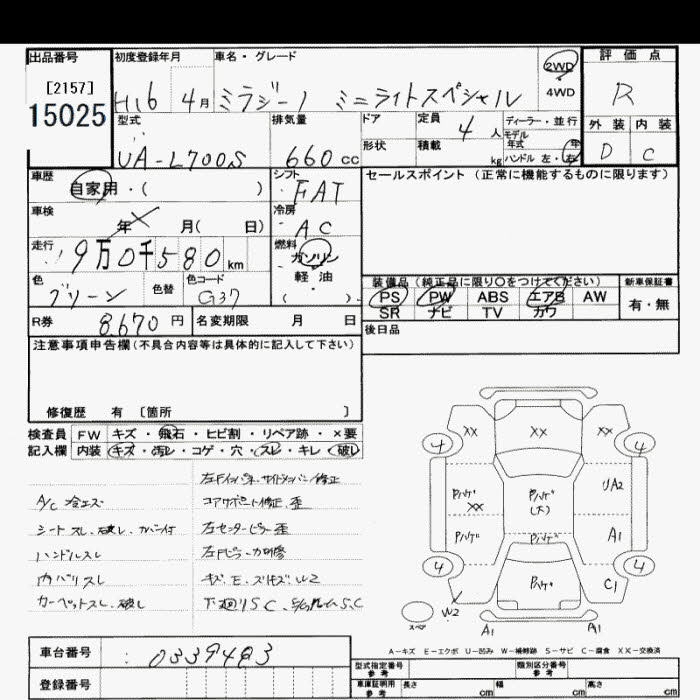 出品番号 初度登録年月 車名・グレード 2WD 4WD 評価点
[2157]
15025 H16 4月 ミラジーノ ミニライトスペシャル R
型式 排気量 ドア 定員 4人 ディーラー・並行 外装 内装
モデル
年式 年
UA-L700S 660cc 形状 積載 kg ハンドル 左・右 D C
車歴 シフト セールスポイント (正常に機能するものに限ります)
自家用・( ) FAT
車検 冷房
年 月( 日) AC
走行 燃料
9万0千580km ガソリン
色 色替 色コード 軽・油 装備品 (純正品に限り○をつけてください) 新車保証書
グリーン G37 ( ) PS PW ABS エアB AW 有・無
SR ナビ TV カワ
R券 8,670円 名変期限 月 日 後日品
注意事項申告欄(不具合内容等は具体的に記入して下さい)
修復歴 有 〔箇所 〕
検査員 FW キズ・飛石・ヒビ割・リペア跡・×要
記入欄 内装 キズ・汚レ・コゲ・穴・スレ・キレ・破レ
A/C 冷エズ コアサポート修正、歪
シートスレ、破レ、カバー付 左センターピラー歪
ハンドルスレ
内バリスレ キズ、E、スリキズ、W2
カーペットスレ、破レ
XX XX XX
4 4
パネゲ パネゲ UA2
XX (大)
パネゲ パネゲ A1
4 4
パネゲ C1
スペア W2
A1 A1
A-キズ E-エクボ U-凹み W-補修跡 S-サビ C-腐食 XX-交換済
車台番号 0339483 型式指定番号 参考 類別区分番号 参考
登録番号 車庫証明用 参考 長さ cm 幅 cm 高さ cm